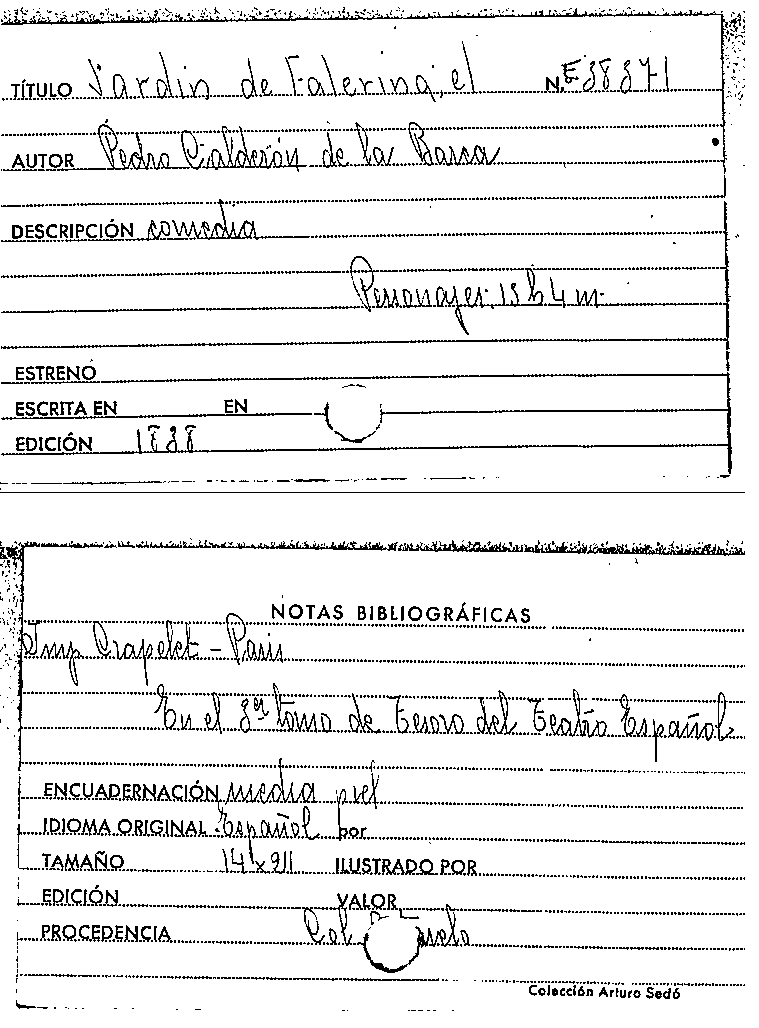 TÍTULO Jardin de Falerina, el N. E 38371
AUTOR Pedro Calderón de la Barca
DESCRIPCIÓN comedia
Personajes. 15 h 4 m.
ESTRENO
ESCRITA EN EN
EDICIÓN 1838
NOTAS BIBLIOGRÁFICAS
Imp Crapelet - Paris
En el 3er tomo de Tesoro del Teatro Español.
ENCUADERNACIÓN media piel
IDIOMA ORIGINAL Español por
TAMAÑO ILUSTRADO POR
EDICIÓN VALOR
PROCEDENCIA Col
Colección Arturo Sedó